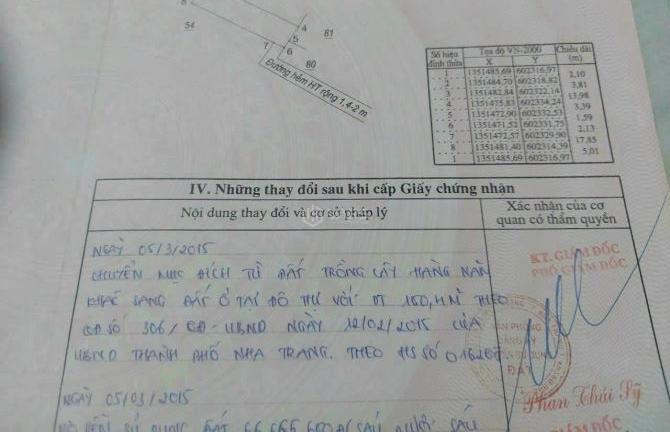 8
54
4
81
5
7
6
80
Đường hẻm HT rộng 1,4-2 m
Số hiệu đỉnh thửa | Tọa độ VN-2000 | Chiều dài (m)
X | Y
1 | 1351485,69 | 602316,97
2,10
2 | 1351484,70 | 602318,82
3,81
3 | 1351482,84 | 602322,14
13,98
4 | 1351475,83 | 602334,24
3,39
5 | 1351472,90 | 602332,53
1,59
6 | 1351471,52 | 602331,75
2,13
7 | 1351472,57 | 602329,90
17,85
8 | 1351481,40 | 602314,39
5,01
1 | 1351485,69 | 602316,97
IV. Những thay đổi sau khi cấp Giấy chứng nhận
Nội dung thay đổi và cơ sở pháp lý
Xác nhận của cơ
quan có thẩm quyền
NGÀY 05/3/2015
CHUYỂN MỤC ĐÍCH TỪ ĐẤT TRỒNG CÂY HÀNG NĂM
KHÁC SANG ĐẤT Ở TẠI ĐÔ THỊ VỚI DT THEO
QĐ SỐ 306/QĐ-UBND NGÀY 12/02/2015 CỦA
UBND THÀNH PHỐ NHA TRANG. THEO HS SỐ
KT. GIÁM ĐỐC
PHÓ GIÁM ĐỐC
VĂN PHÒNG
ĐĂNG KÝ
ĐẤT
Phan Thái Sỹ
NGÀY 05/03/2015
SỬ DỤNG ĐẤT
GIÁM ĐỐC